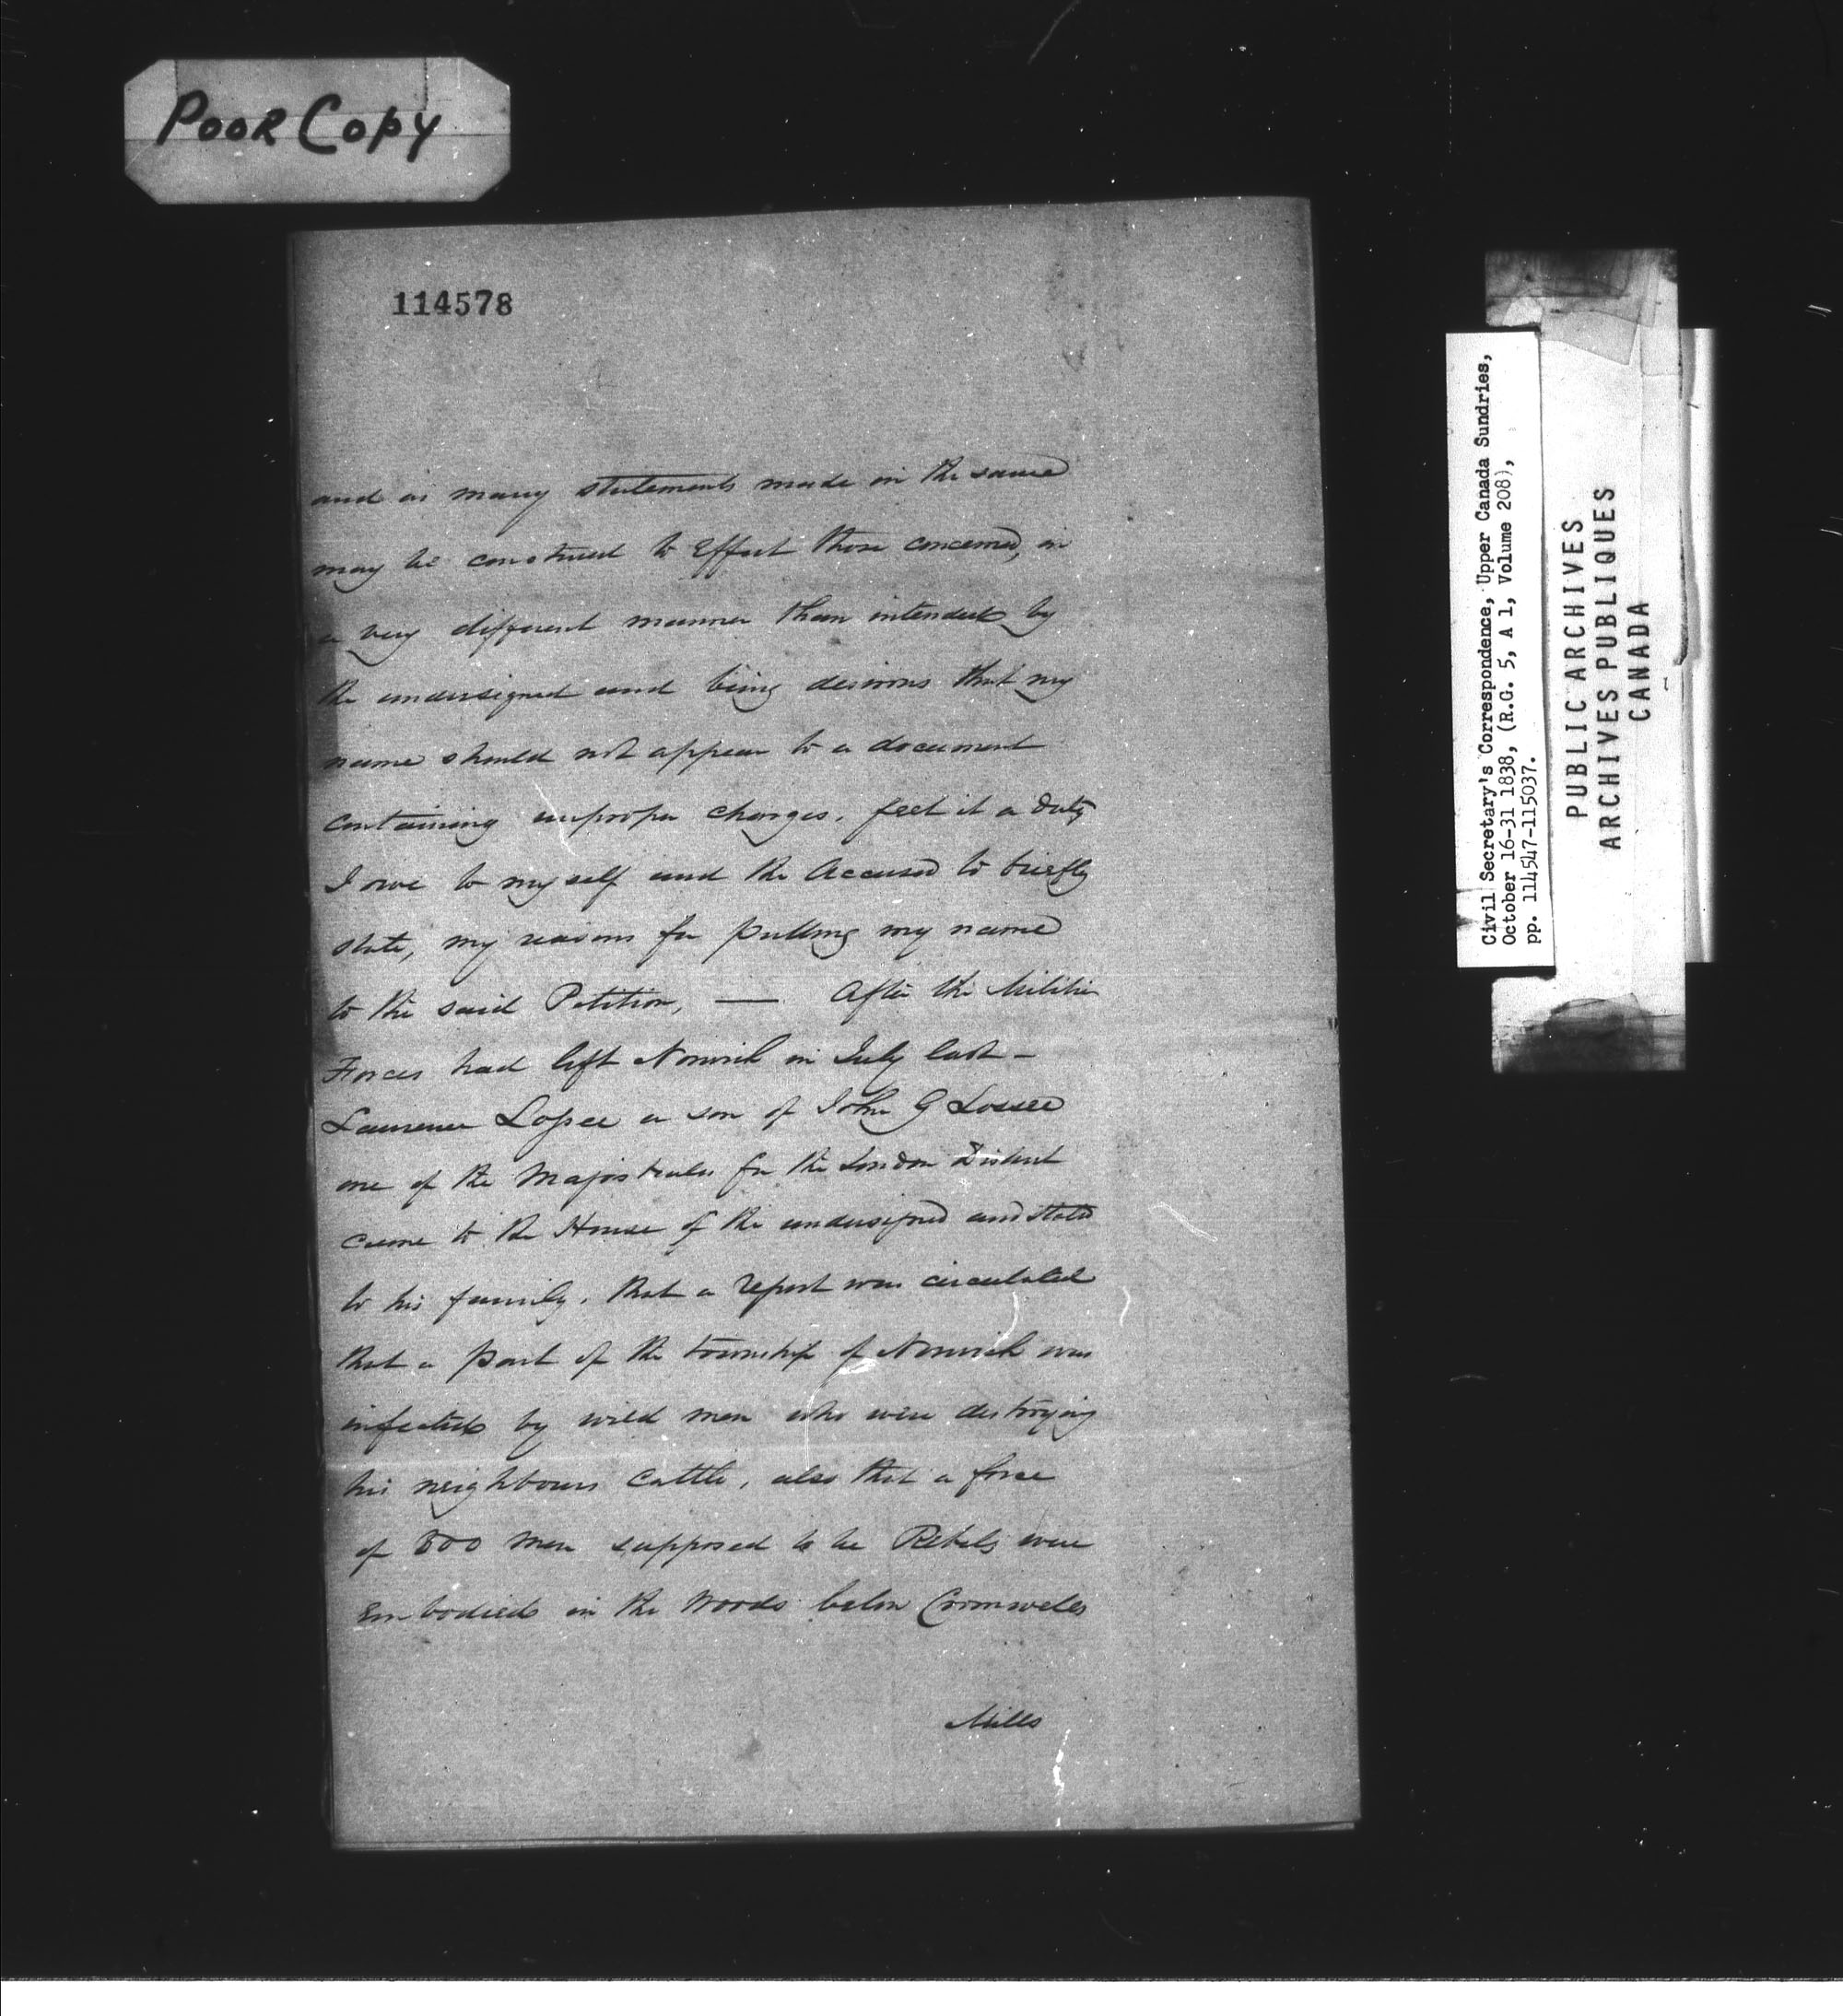 Poor Copy
114578
and as many statements made in the same
may be construed to Effect those concerned, in
a very different manner than intended by
the undersigned and being desirous that my
name should not appear to a document
containing improper charges, feel it a duty
I owe to myself and the Accused to briefly
state, my reasons for putting my name
to the said Petition, — After the Militia
Forces had left Norwich in July last –
Laurence Losee a son of John G Lossee
one of the Majistrates for the London District
came to the House of the undersigned and stated
to his family, that a report was circulated
that a part of the township of Norwich was
infested by wild men who were destroying
his neighbours Cattle, also that a force
of 800 men supposed to be Rebels were
Embodied in the Woods below Cromwells
Mills
Civil Secretary's Correspondence, Upper Canada Sundries,
October 16-31 1838, (R.G. 5, A 1, Volume 208),
pp. 114547-115037.
PUBLIC ARCHIVES
ARCHIVES PUBLIQUES
CANADA